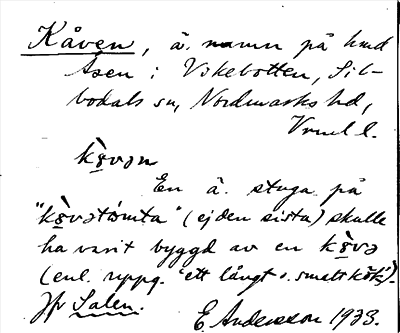 Kåven, ä. namn på hmd
Åsen i Vikebotten, Sil-
bodals sn, Nordmarks hd,
Vrml l.
kòvən
En ä. stuga på
"kòvətomta" (ej den sista) skulle
ha varit byggd av en kòvə
(enl. uppg. "ett långt o. smalt
Jfr Salen.
E. Andersson 1933.